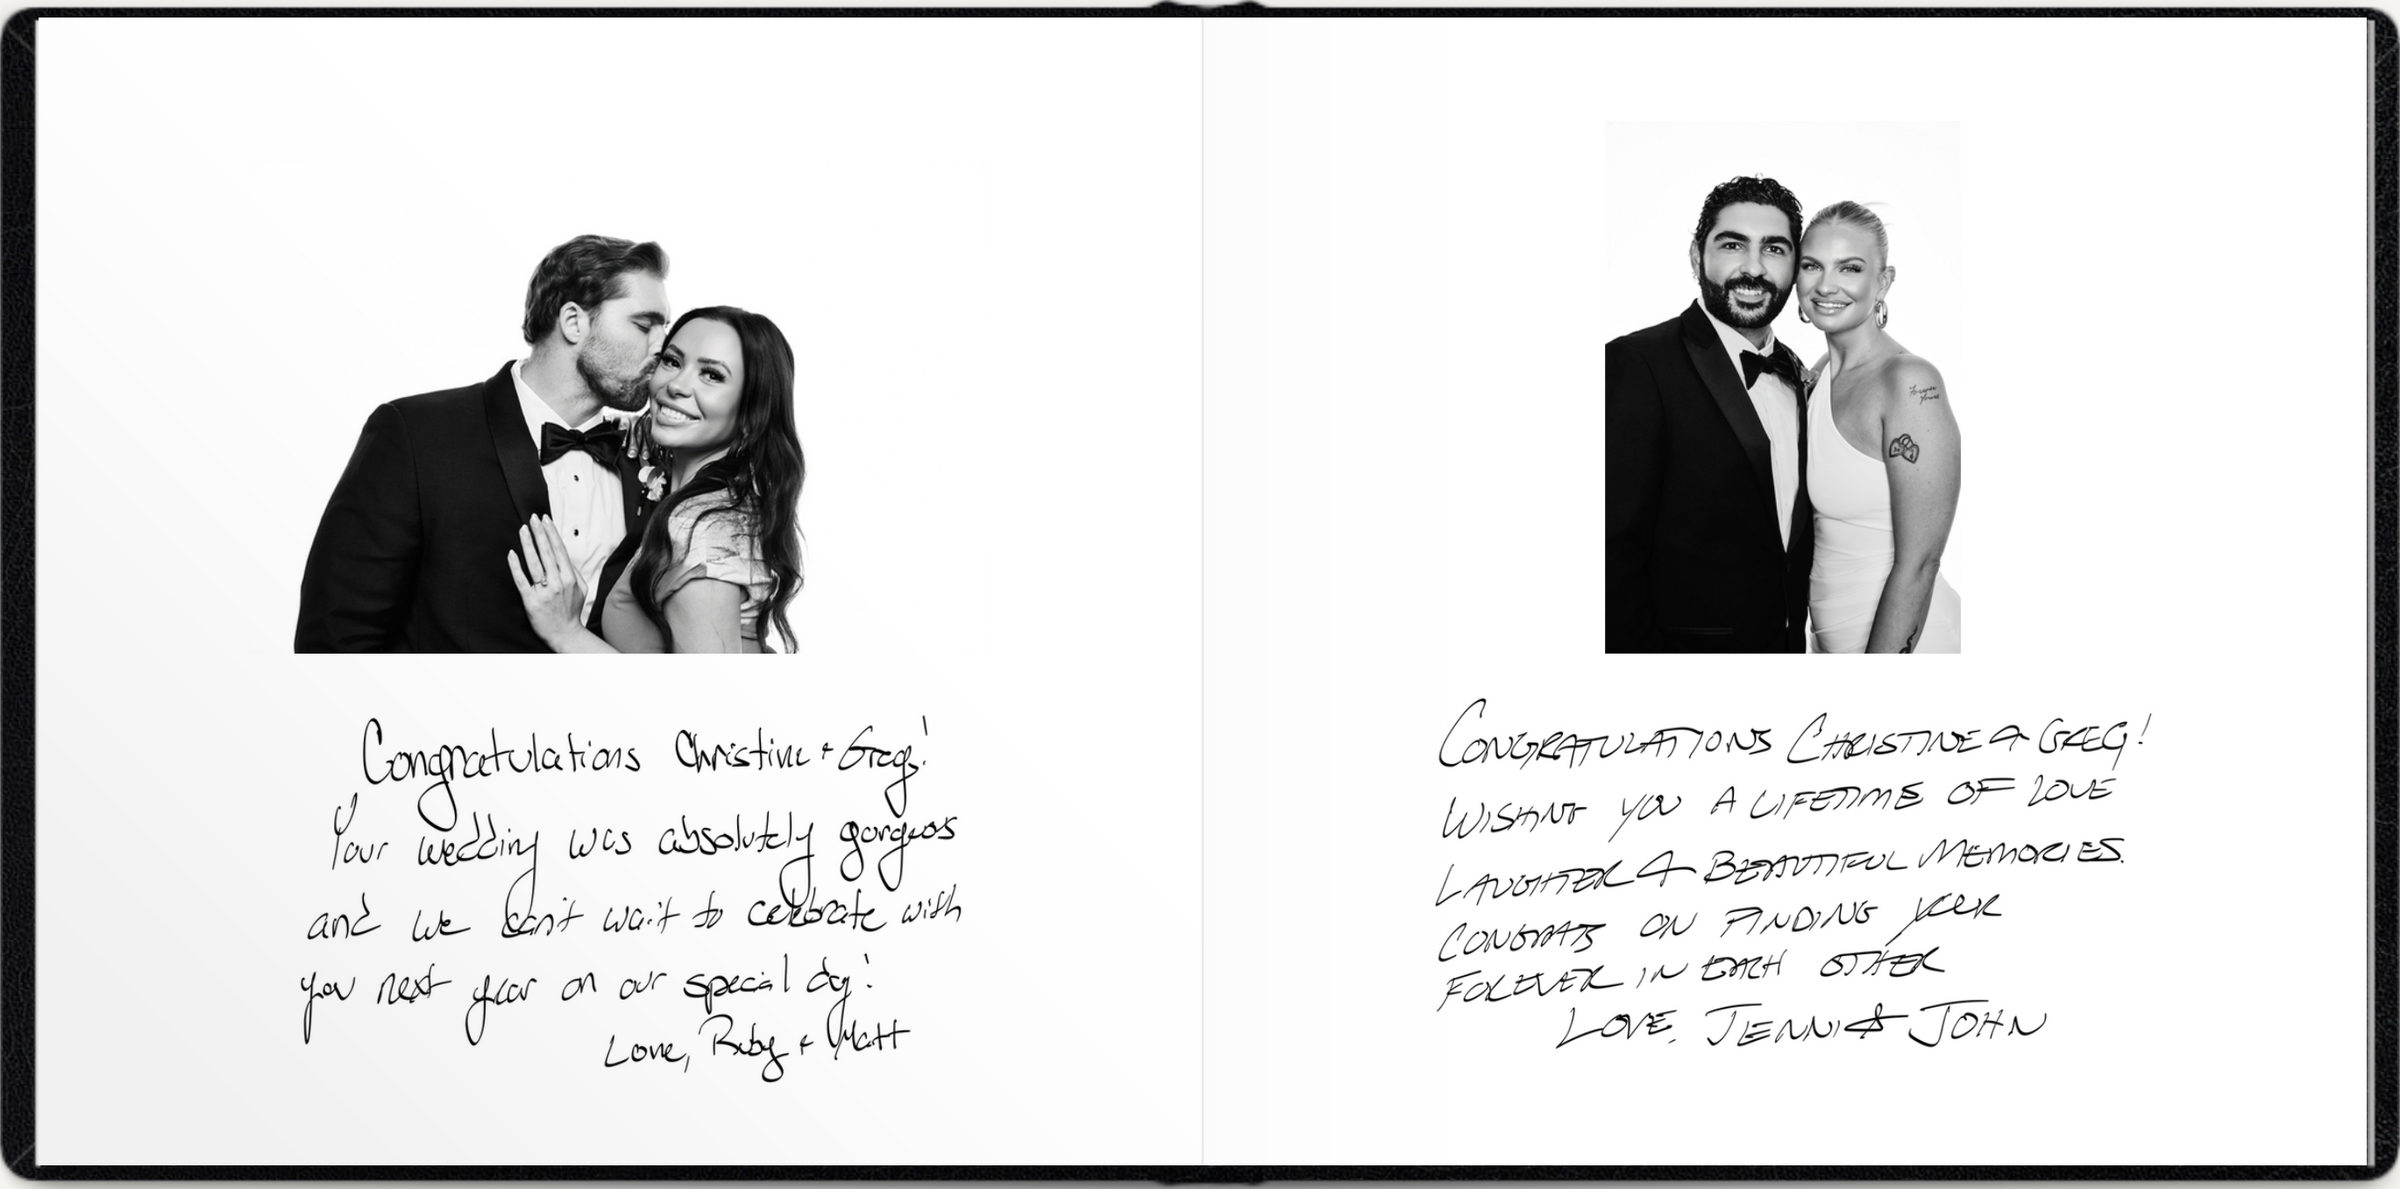 Congratulations Christine + Greg!
Your wedding was absolutely gorgeous
and we can't wait to celebrate with
you next year on our special day!
Love, Ruby + Matt
CONGRATULATIONS CHRISTINE & GREG!
WISHING YOU A LIFETIME OF LOVE
LAUGHTER & BEAUTIFUL MEMORIES.
CONGRATS ON FINDING YOUR
FOREVER IN EACH OTHER
LOVE, JENNI & JOHN